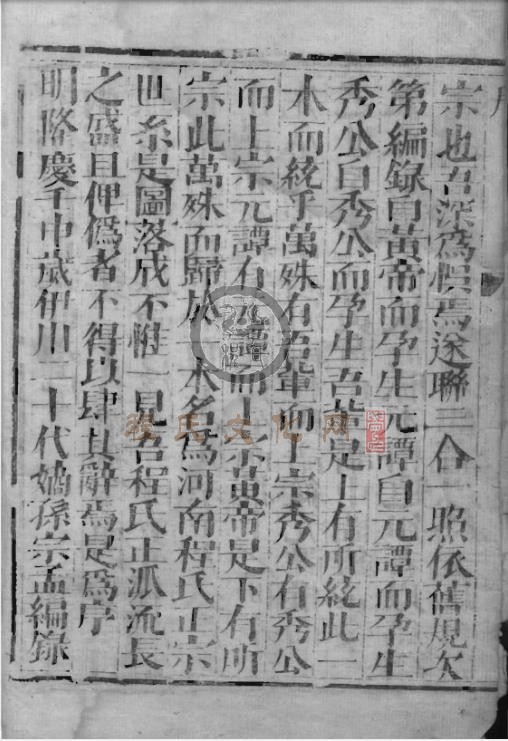 序
宗也吾深為懼焉遂聯三合一照依舊規次
第編錄自黃帝而孕生元譚自元譚而孕生
秀公自秀公而孕生吾輩是上有所統此一
本而統乎萬殊有吾輩而上宗秀公有秀公
而上宗元譚有元譚而上宗黃帝是下有所
宗此萬殊而歸於一本名為河南程氏正宗
世系是圖落成不惟一見吾程氏正派流長
之盛且俾偽者不得以肆其辭焉是為序
明隆慶壬申歲伊川二十代嫡孫宗孟編錄
程氏文化網